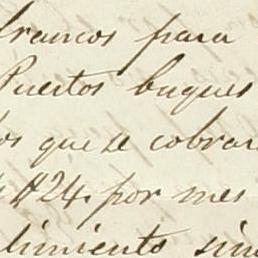 francos para
Puertos buques
los que se cobrar
$24. por mes
dimiento sin